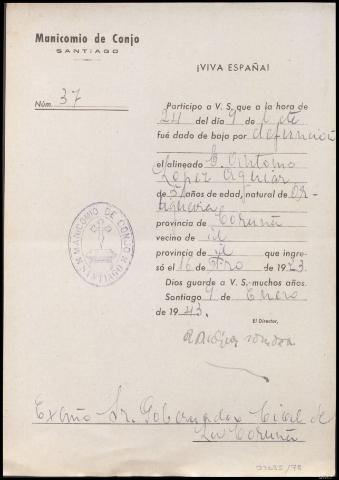 Manicomio de Conjo
SANTIAGO
¡VIVA ESPAÑA!
Núm. 37
Participo a V. S. que a la hora de
24 del día 9 de
fué dado de baja por defunción
el alineado D. Antonio
López Aguiar
de 51 años de edad, natural de Or-
tigueira
provincia de Coruña
vecino de id
provincia de id que ingre-
só el 16 de 1923.
Dios guarde a V. S. muchos años.
Santiago 9 de Enero
de 1943.
El Director,
MANICOMIO DE CONJO
SANTIAGO
Excmo Sr. Gobernador Civil de
La Coruña